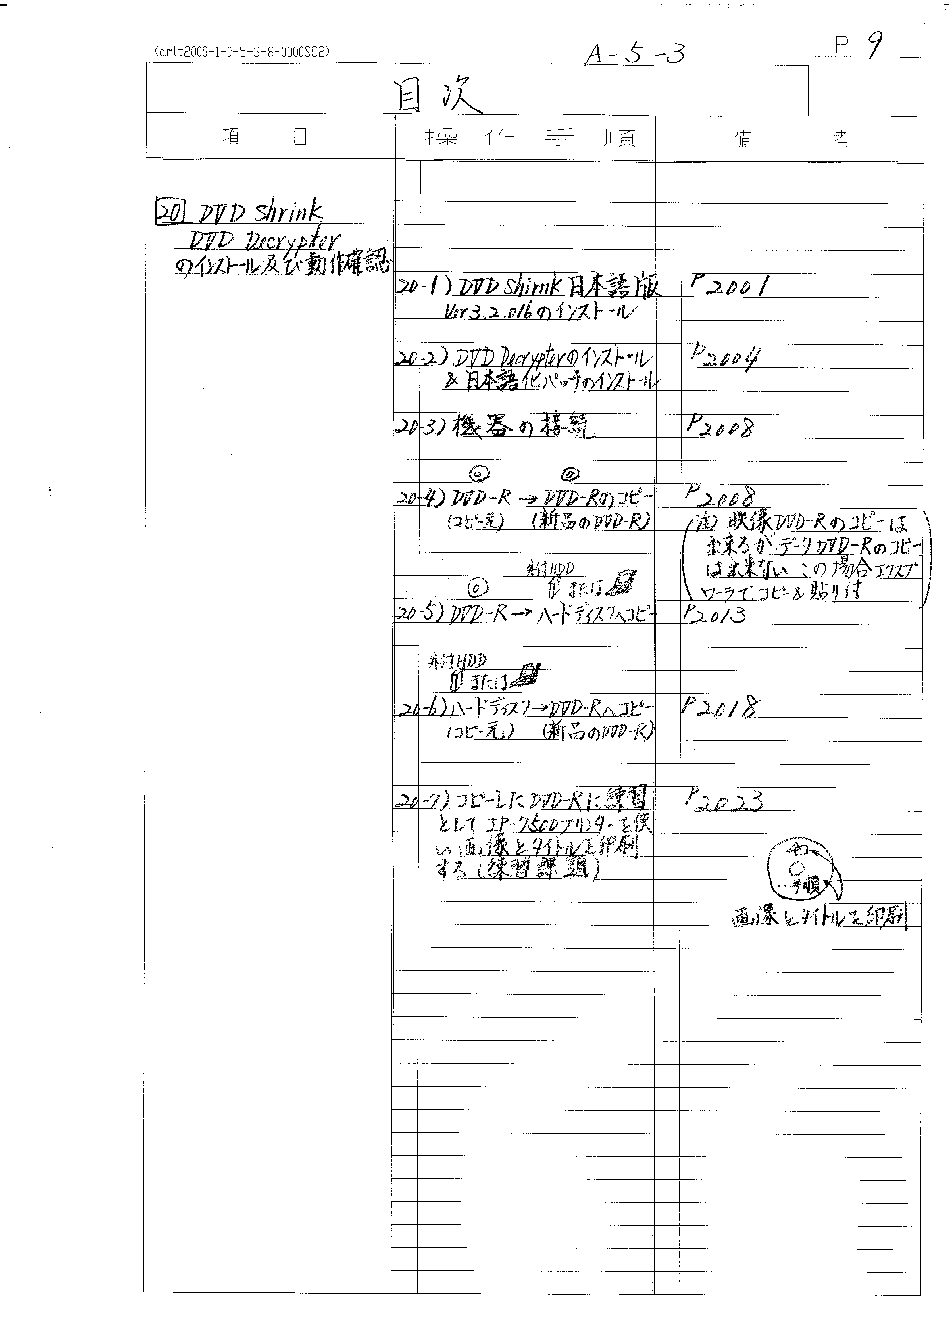 A-5-3
P 9
目次
項 目
操 作 手 順
備 考
20 DVD Shrink
DVD Decrypter
のインストール及び動作確認
20-1) DVD Shrink 日本語版
Ver3.2.016のインストール
P2001
20-2) DVD Decrypterのインストール
& 日本語化パッチのインストール
P2004
20-3) 機器の接続
P2008
20-4) DVD-R → DVD-Rのコピー
(コピー元) (新品のDVD-R)
P2008
(注) 映像DVD-Rのコピーは
出来るがデータDVD-Rのコピー
は出来ない この場合エクスプ
ローラでコピー&貼り付
外付HDD
または
20-5) DVD-R → ハードディスクへコピー
P2013
外付HDD
または
20-6) ハードディスク → DVD-Rへコピー
(コピー元) (新品のDVD-R)
P2018
20-7) コピーしたDVD-Rに練習
として IP-7500プリンターを使
い画像とタイトルを印刷
する (練習課題)
P2023
手順
画像とタイトルを印刷